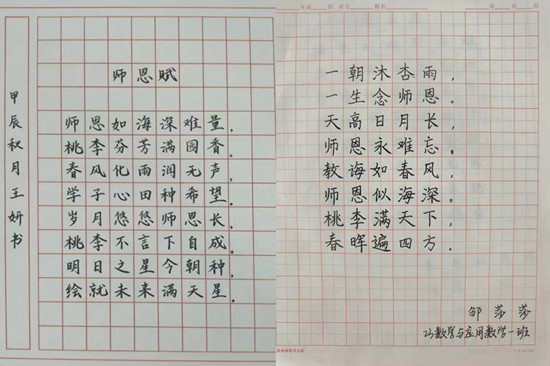 师恩赋
师恩如海深难量。
桃李芬芳满园香。
春风化雨润无声，
学子心田种希望。
岁月悠悠师恩长，
桃李不言下自成。
明日之星今朝种，
绘就未来满天星。
甲辰秋月王妍书
一朝沐杏雨，
一生念师恩。
天高日月长，
师恩永难忘。
教诲如春风，
师恩似海深。
桃李满天下，
春晖遍四方。
邵莎莎
23数学与应用数学一班